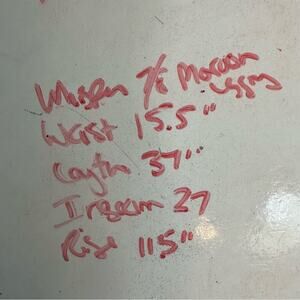 7/8 Maroon
Waist 15.5"
Length 37"
Inseam 27
Rise 11.5"